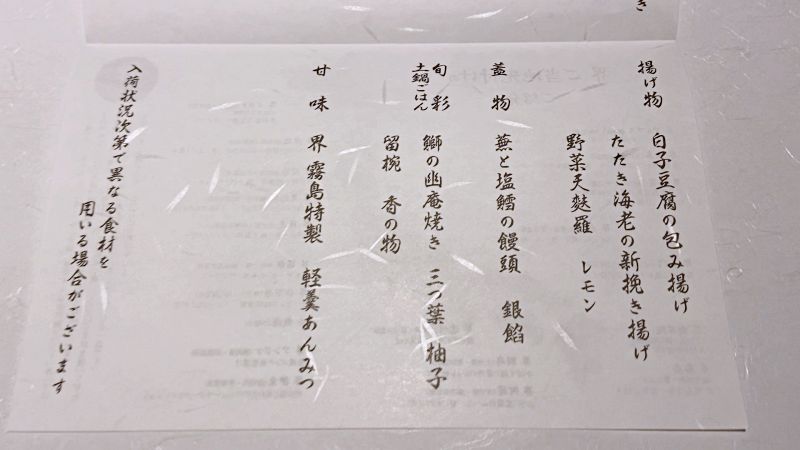 き
揚げ物
白子豆腐の包み揚げ
たたき海老の新挽き揚げ
野菜天麩羅 レモン
蓋物
蕪と塩鱈の饅頭 銀餡
旬彩
土鍋ごはん
鰤の幽庵焼き 三つ葉 柚子
留椀 香の物
甘味
界 霧島特製 軽羹あんみつ
入荷状況次第で異なる食材を
用いる場合がございます